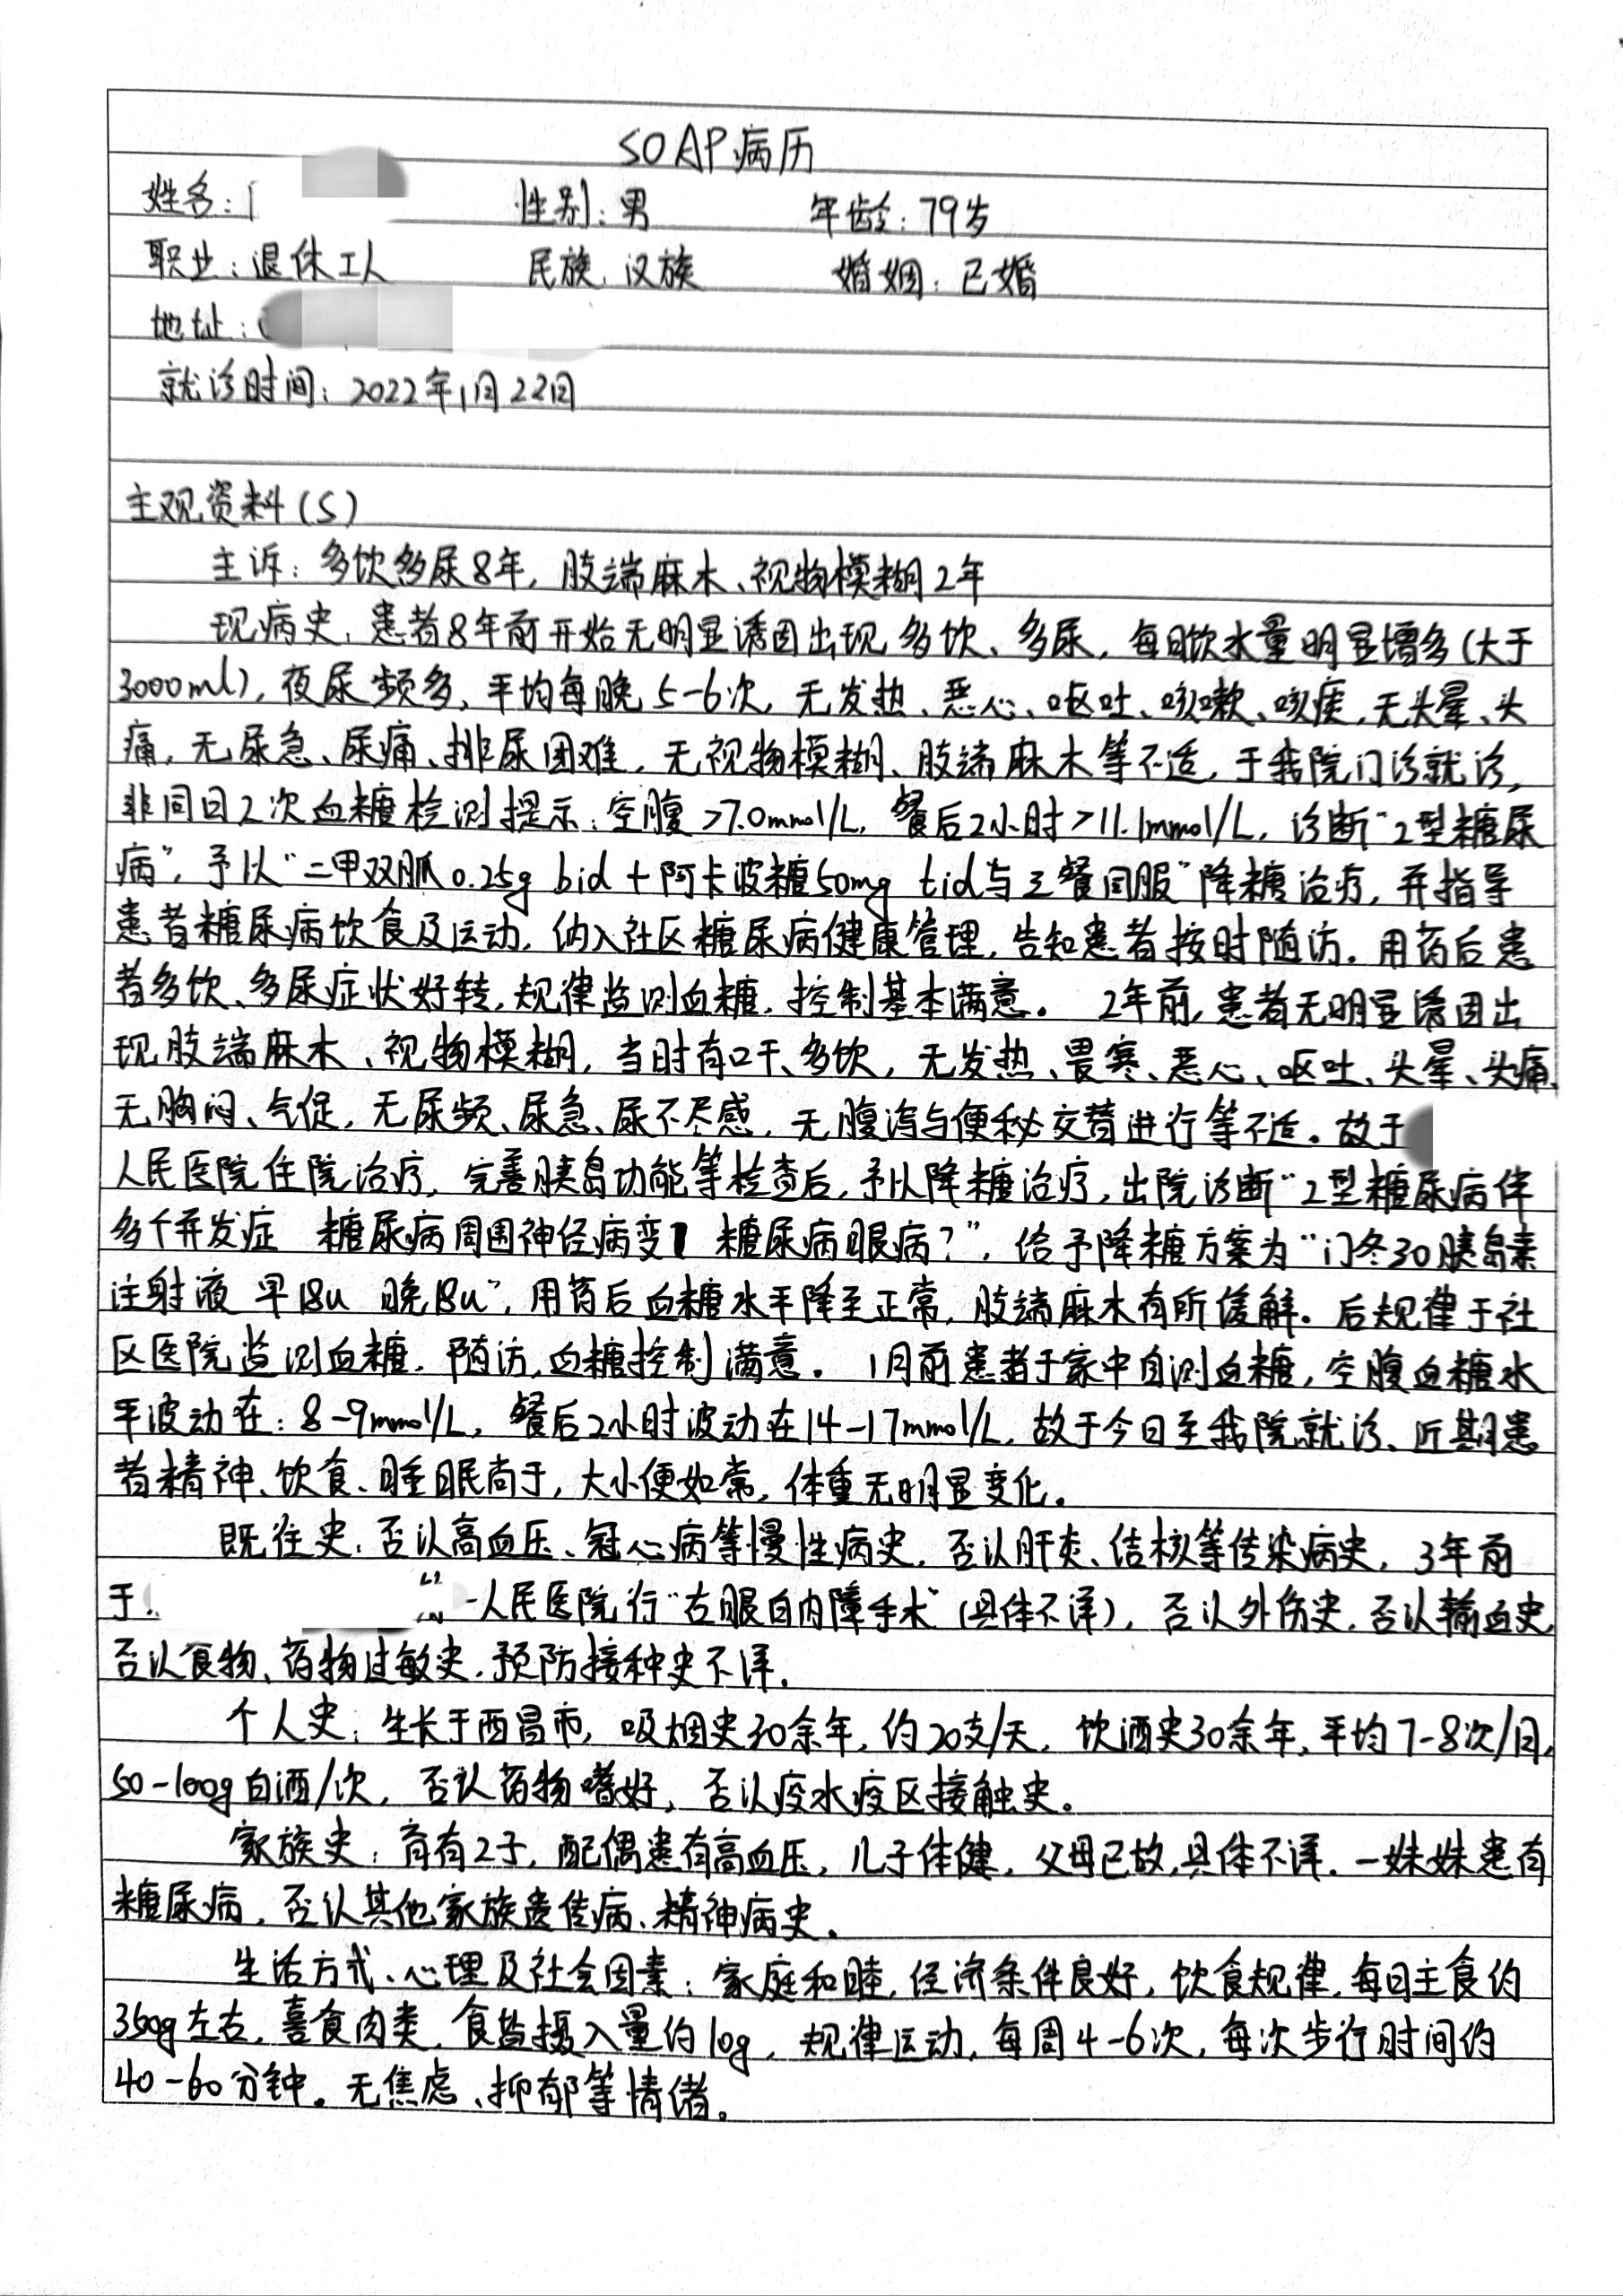 SOAP病历
姓名: 性别: 男 年龄: 79岁
职业: 退休工人 民族: 汉族 婚姻: 已婚
地址:
就诊时间: 2022年1月22日
主观资料(S)
主诉: 多饮多尿8年, 肢端麻木、视物模糊2年
现病史: 患者8年前开始无明显诱因出现多饮、多尿, 每日饮水量明显增多(大于
3000ml), 夜尿频多, 平均每晚5-6次, 无发热、恶心、呕吐、咳嗽、咳痰, 无头晕、头
痛, 无尿急、尿痛、排尿困难, 无视物模糊、肢端麻木等不适, 于我院门诊就诊,
非同日2次血糖检测提示: 空腹>7.0mmol/L, 餐后2小时>11.1mmol/L, 诊断"2型糖尿
病", 予以"二甲双胍0.25g bid + 阿卡波糖50mg tid与三餐同服"降糖治疗, 并指导
患者糖尿病饮食及运动, 纳入社区糖尿病健康管理, 告知患者按时随访. 用药后患
者多饮、多尿症状好转, 规律监测血糖, 控制基本满意。 2年前, 患者无明显诱因出
现肢端麻木、视物模糊, 当时有口干、多饮, 无发热、畏寒、恶心、呕吐、头晕、头痛,
无胸闷、气促, 无尿频、尿急、尿不尽感, 无腹泻与便秘交替进行等不适。故于
人民医院住院治疗, 完善胰岛功能等检查后, 予以降糖治疗, 出院诊断"2型糖尿病伴
多个并发症 糖尿病周围神经病变 糖尿病眼病?", 给予降糖方案为"门冬30胰岛素
注射液 早18u 晚18u", 用药后血糖水平降至正常, 肢端麻木有所缓解。后规律于社
区医院监测血糖, 随访, 血糖控制满意。 1月前患者于家中自测血糖, 空腹血糖水
平波动在: 8-9mmol/L, 餐后2小时波动在14-17mmol/L, 故于今日至我院就诊、近期患
者精神、饮食、睡眠尚于, 大小便如常, 体重无明显变化。
既往史: 否认高血压、冠心病等慢性病史, 否认肝炎、结核等传染病史, 3年前
于 人民医院行"右眼白内障手术"(具体不详), 否认外伤史, 否认输血史,
否认食物、药物过敏史, 预防接种史不详.
个人史: 生长于西昌市, 吸烟史30余年, 约20支/天, 饮酒史30余年, 平均7-8次/月,
50-100g白酒/次, 否认药物嗜好, 否认疫水疫区接触史。
家族史: 育有2子, 配偶患有高血压, 儿子体健, 父母已故, 具体不详. 一妹妹患有
糖尿病, 否认其他家族遗传病、精神病史.
生活方式、心理及社会因素: 家庭和睦, 经济条件良好, 饮食规律, 每日主食约
350g左右, 喜食肉类, 食盐摄入量约10g, 规律运动, 每周4-6次, 每次步行时间约
40-60分钟。无焦虑、抑郁等情绪。